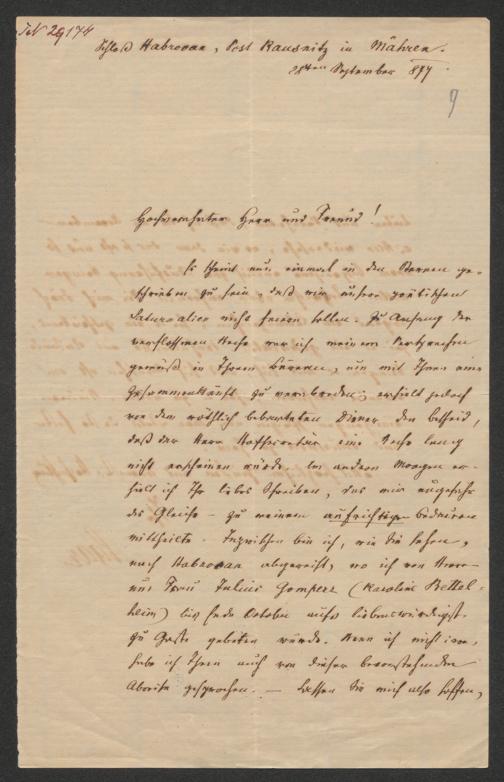 IN 29174
Schloß Habrovan, Post Rausnitz in Mähren.
28ten September 877
9
Hochverehrter Herr und Freund!
Es scheint nun einmal in den Sternen ge-
schrieben zu sein, daß wir unsere poetischen
Saturnalien nicht feiern sollen. Zu Anfang der
verflossenen Woche war ich meinem Versprechen
gemäß in Ihrem Bureau, um mit Ihnen eine
Zusammenkunft zu verabreden; erhielt jedoch
von dem röthlich bebarteten Diener den Bescheid,
daß der Herr Hofsecretär eine Woche lang
nicht erscheinen würde. Am andern Morgen er-
hielt ich Ihr liebes Schreiben, das mir ungefähr
das Gleiche – zu meinem aufrichtigen Bedauern
mittheilte. Inzwischen bin ich, wie Sie sehen,
nach Habrovan abgereist, wo ich von Herrn
und Frau Julius Gomperz (Karoline Bettel-
heim) bis Ende October aufs liebenswürdigste
zu Gaste gebeten wurde. Wenn ich nicht irre,
habe ich Ihnen auch von dieser bevorstehenden
Abreise gesprochen. — Lassen Sie mich also hoffen,